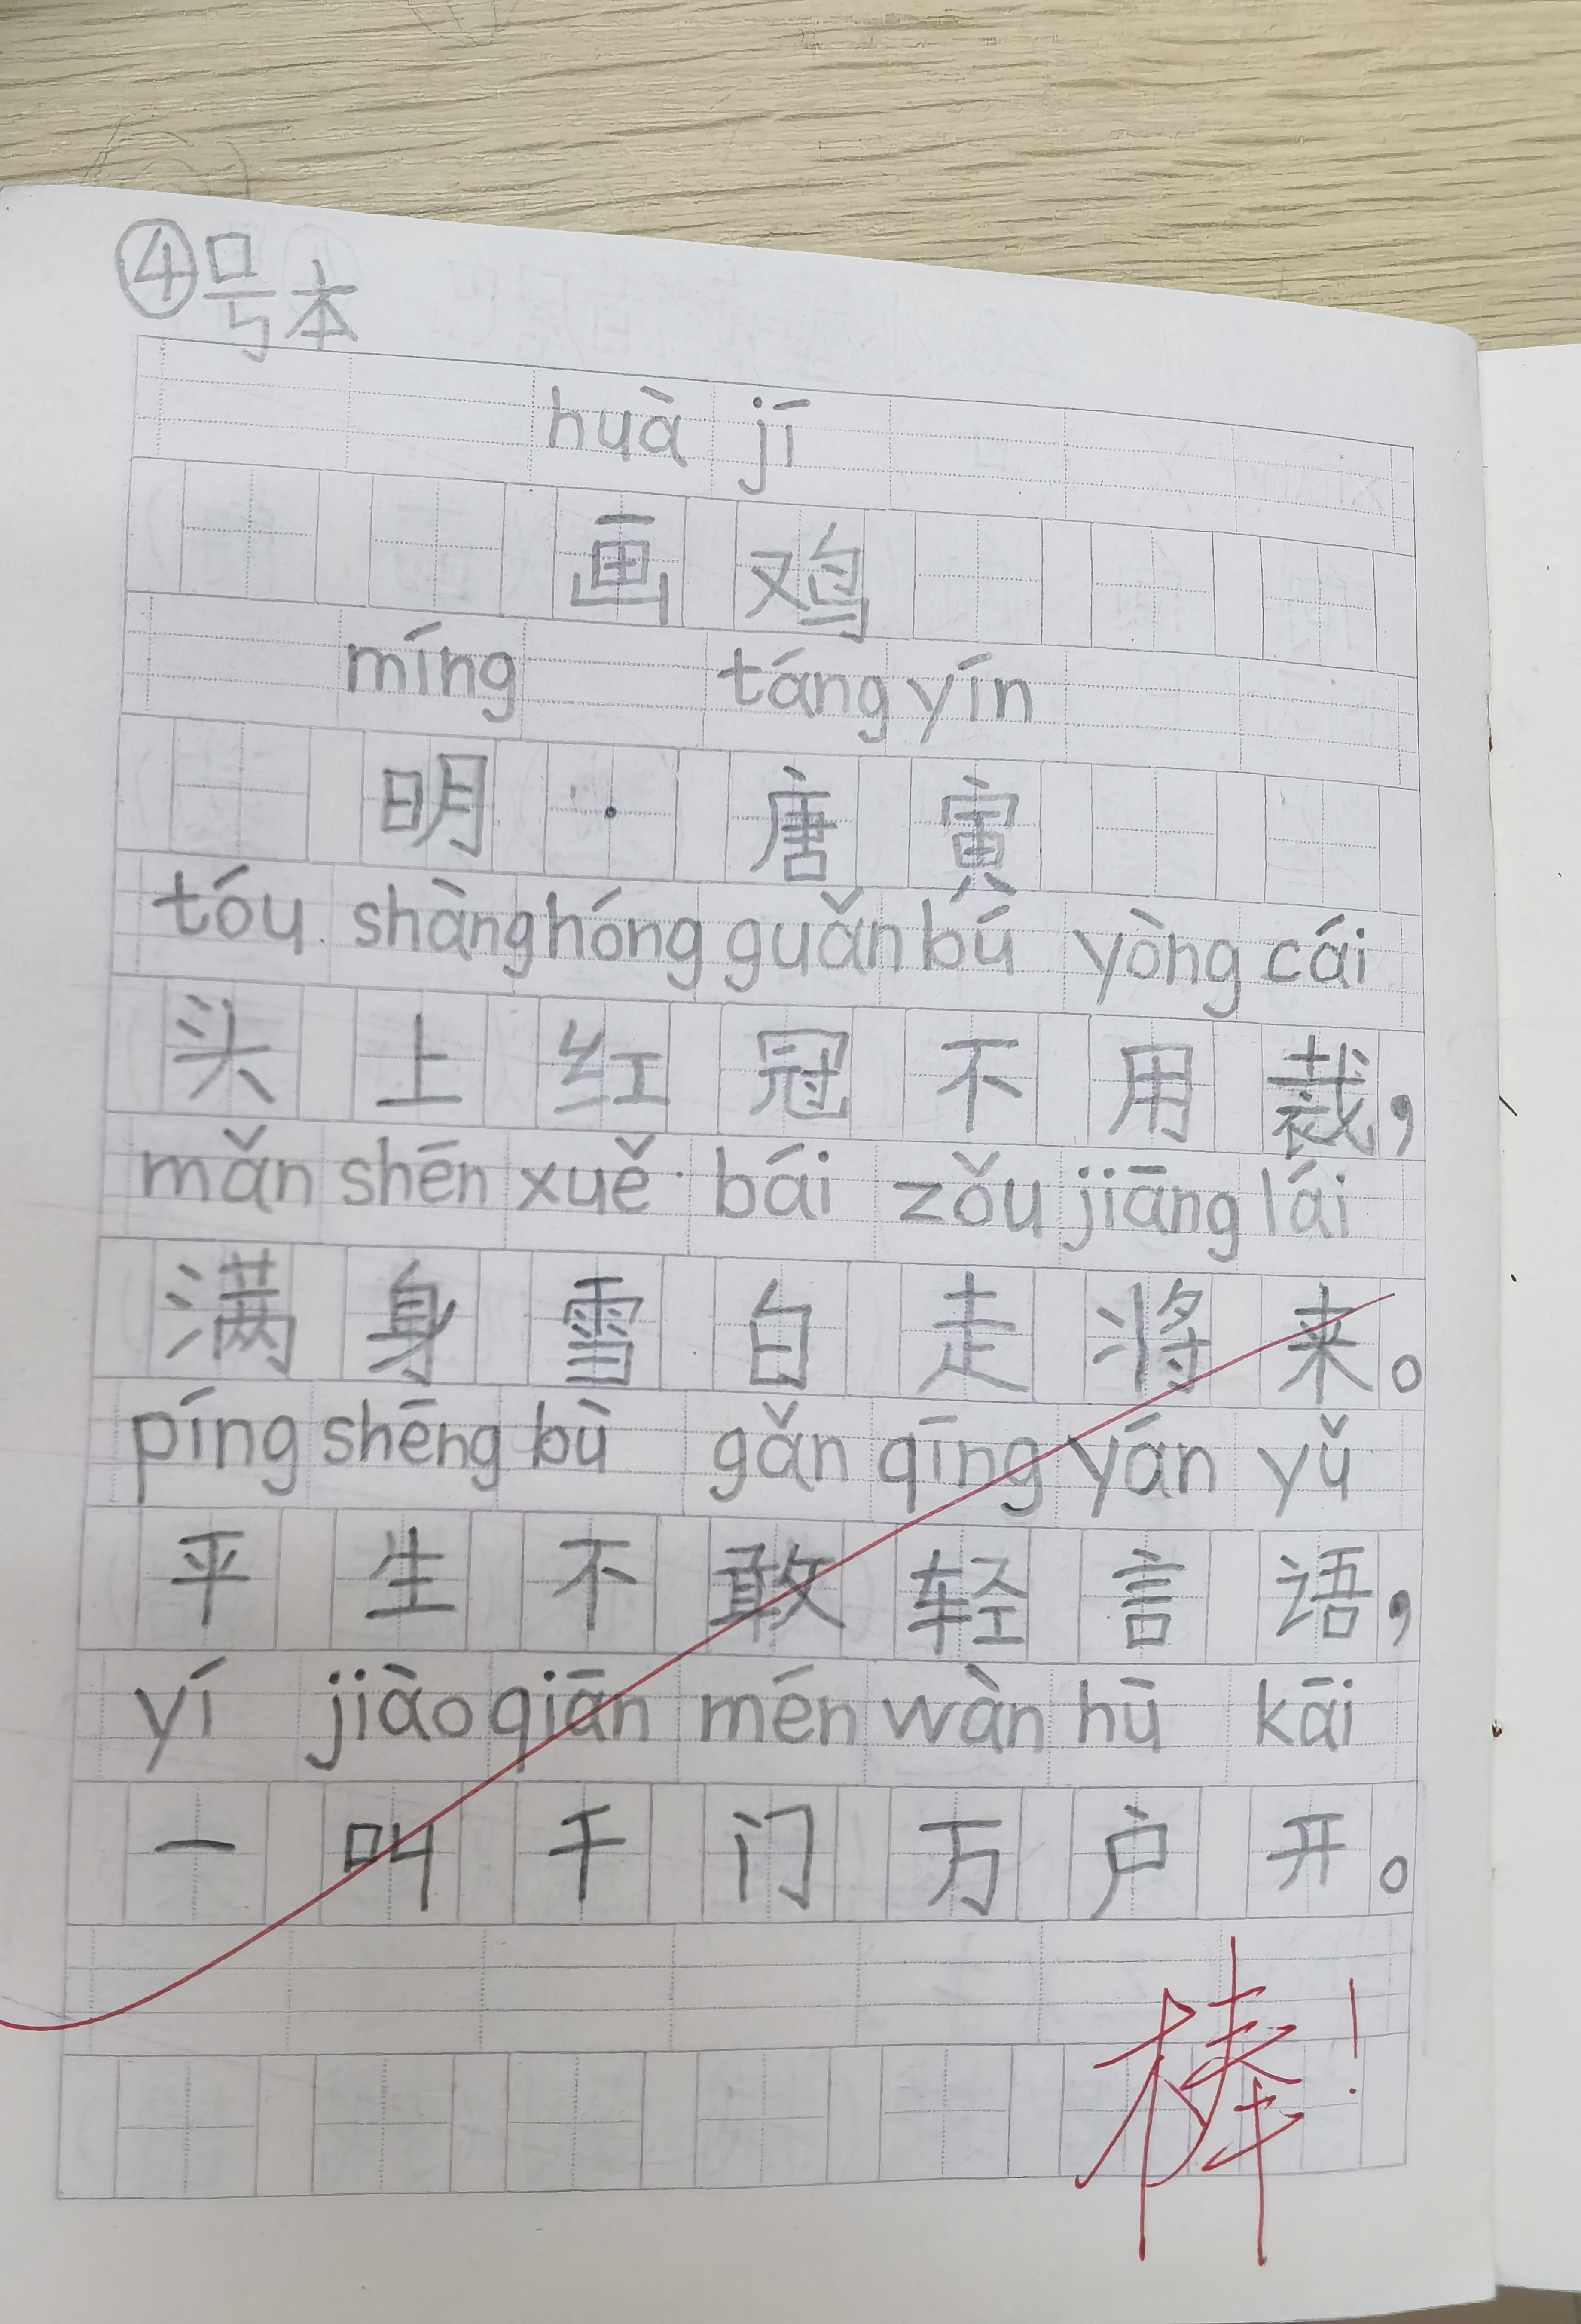 ④号本
huà jī
画鸡
míng táng yín
明·唐寅
tóu shàng hóng guǎn bú yòng cái
头上红冠不用裁，
mǎn shēn xuě bái zǒu jiāng lái
满身雪白走将来。
píng shēng bù gǎn qīng yán yǔ
平生不敢轻言语，
yí jiào qiān mén wàn hū kāi
一叫千门万户开。
棒！